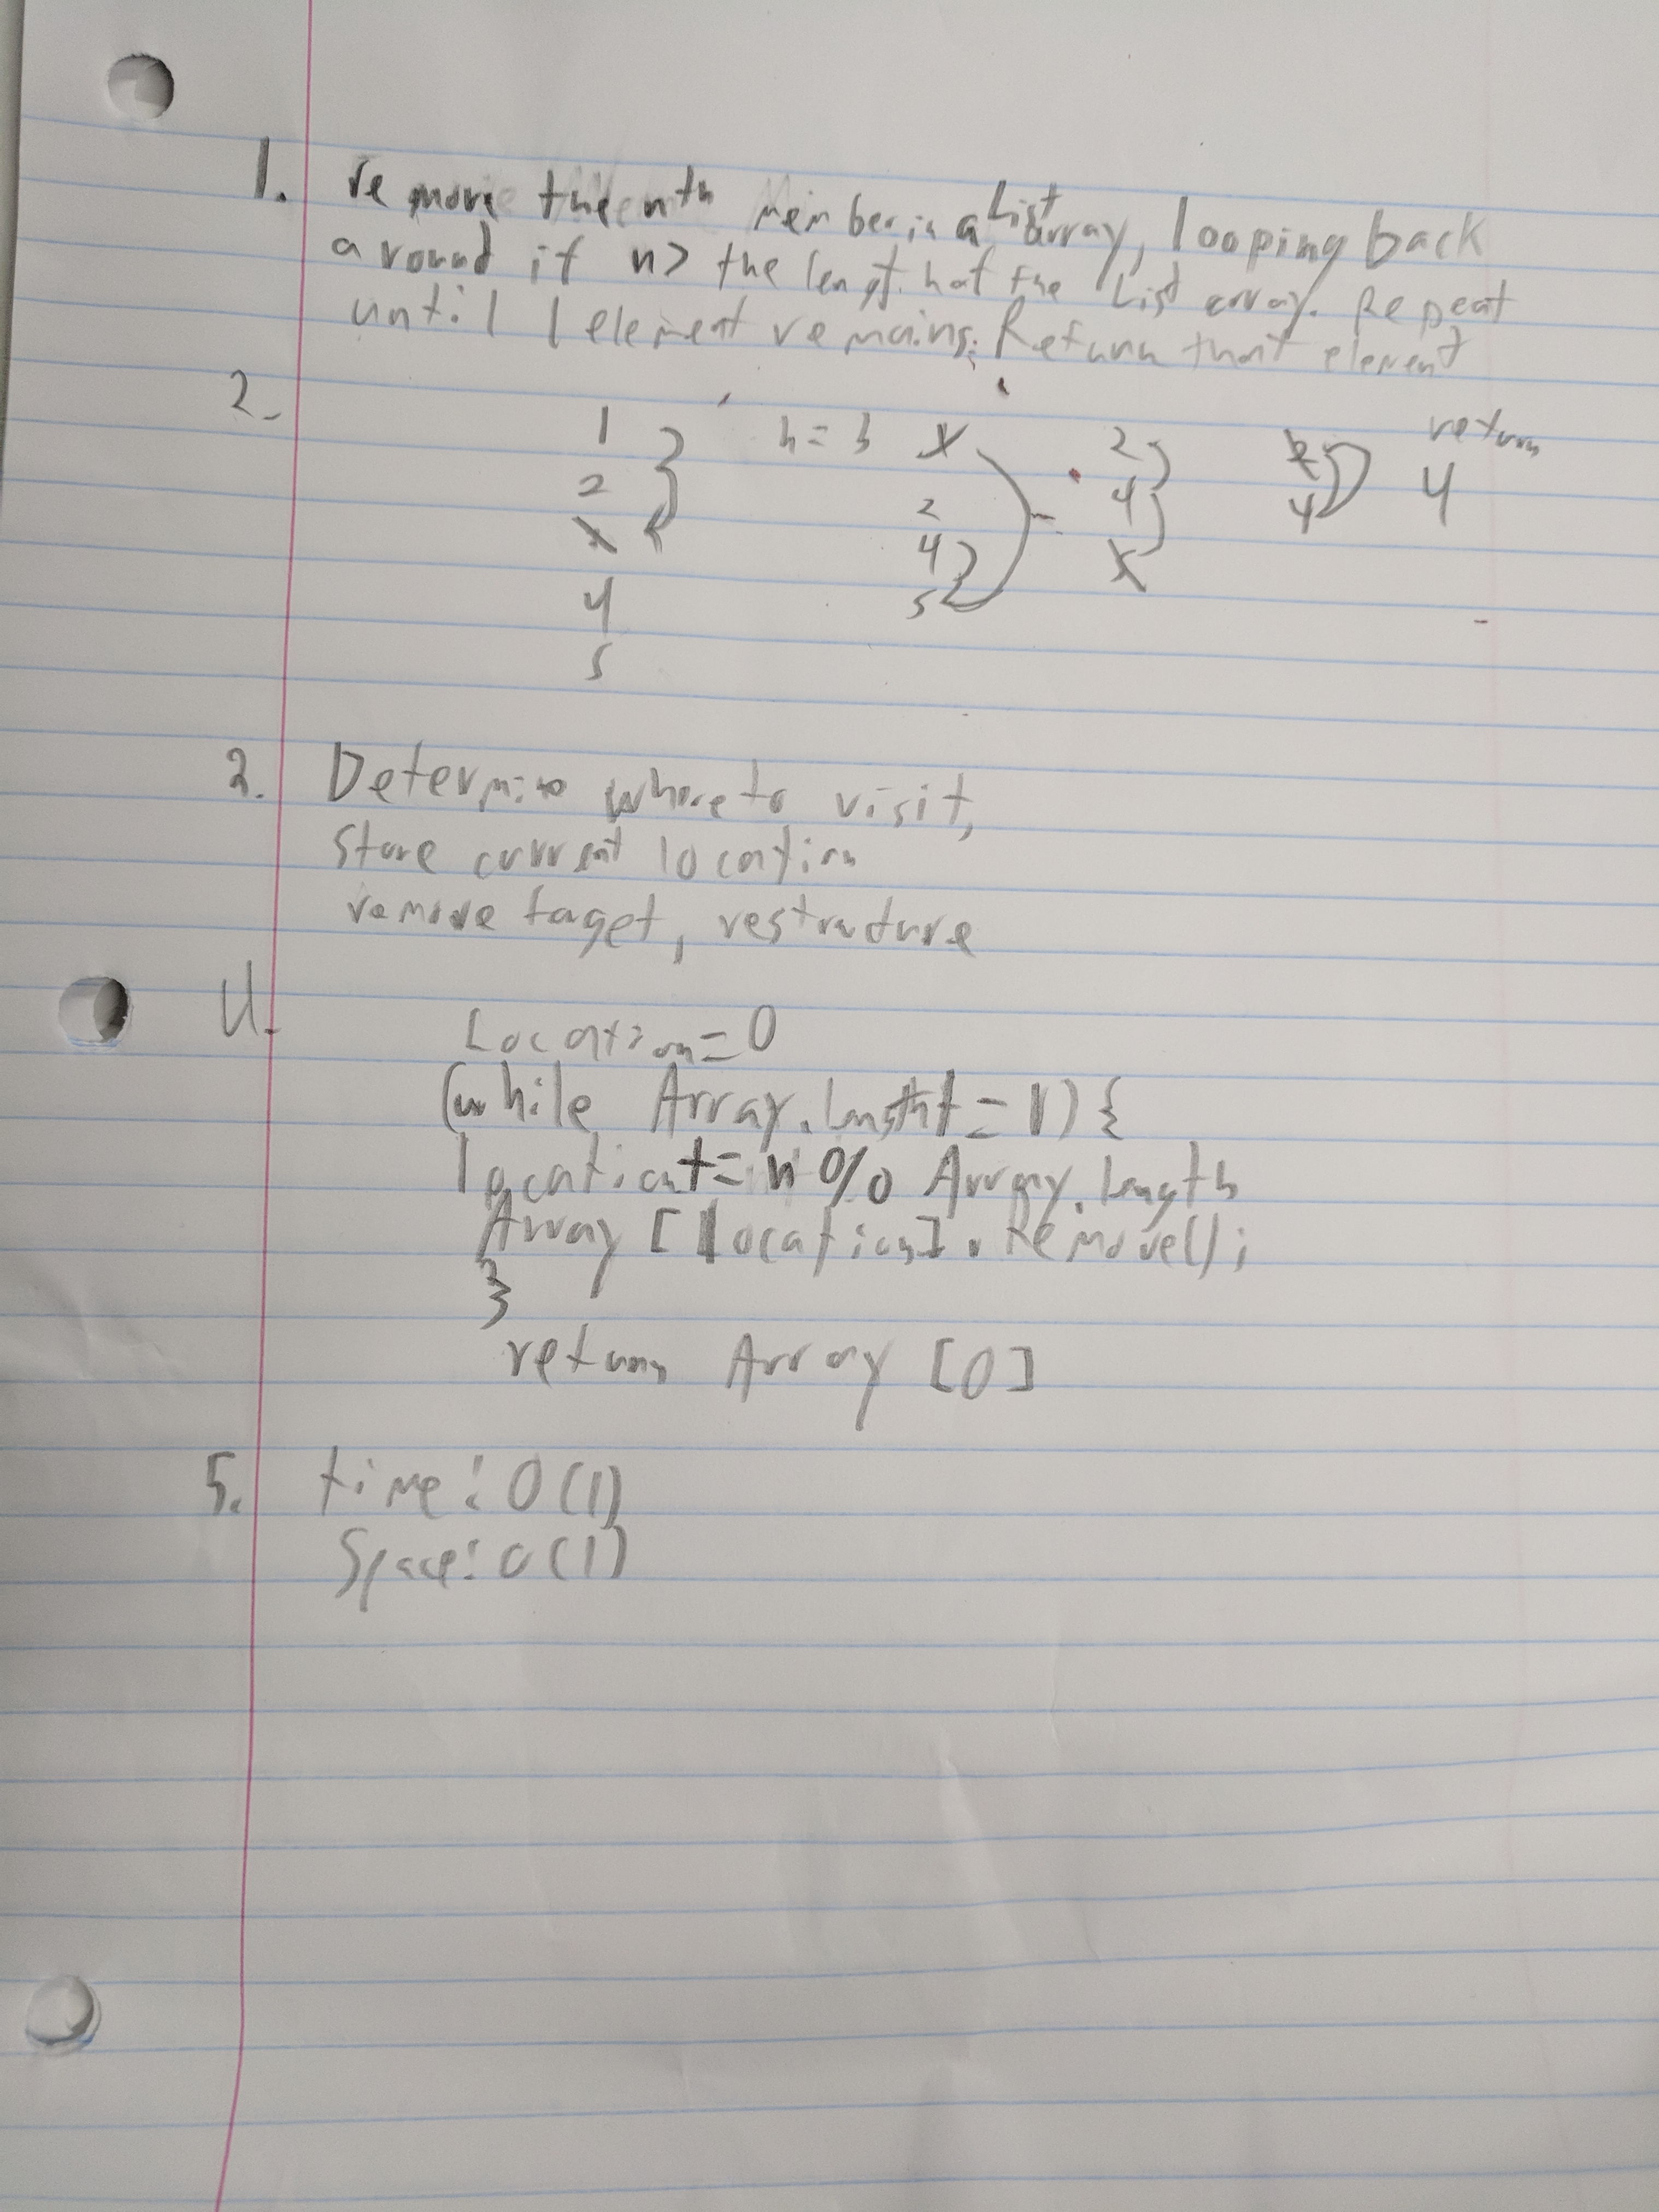 1. remove the nth member in a List array, looping back
around if n> the length of the List array. Repeat
until 1 element remains. Return that element
2. 1 n=3 X 2 2 return
2 2 4 4 4
X 4 X
4 5
5
3. Determine where to visit,
store current location
remove target, restructure
4. Location=0
(while Array.length != 1) {
location += n % Array.length
Array [location].Remove();
}
return Array [0]
5. time: O(1)
Space: O(1)